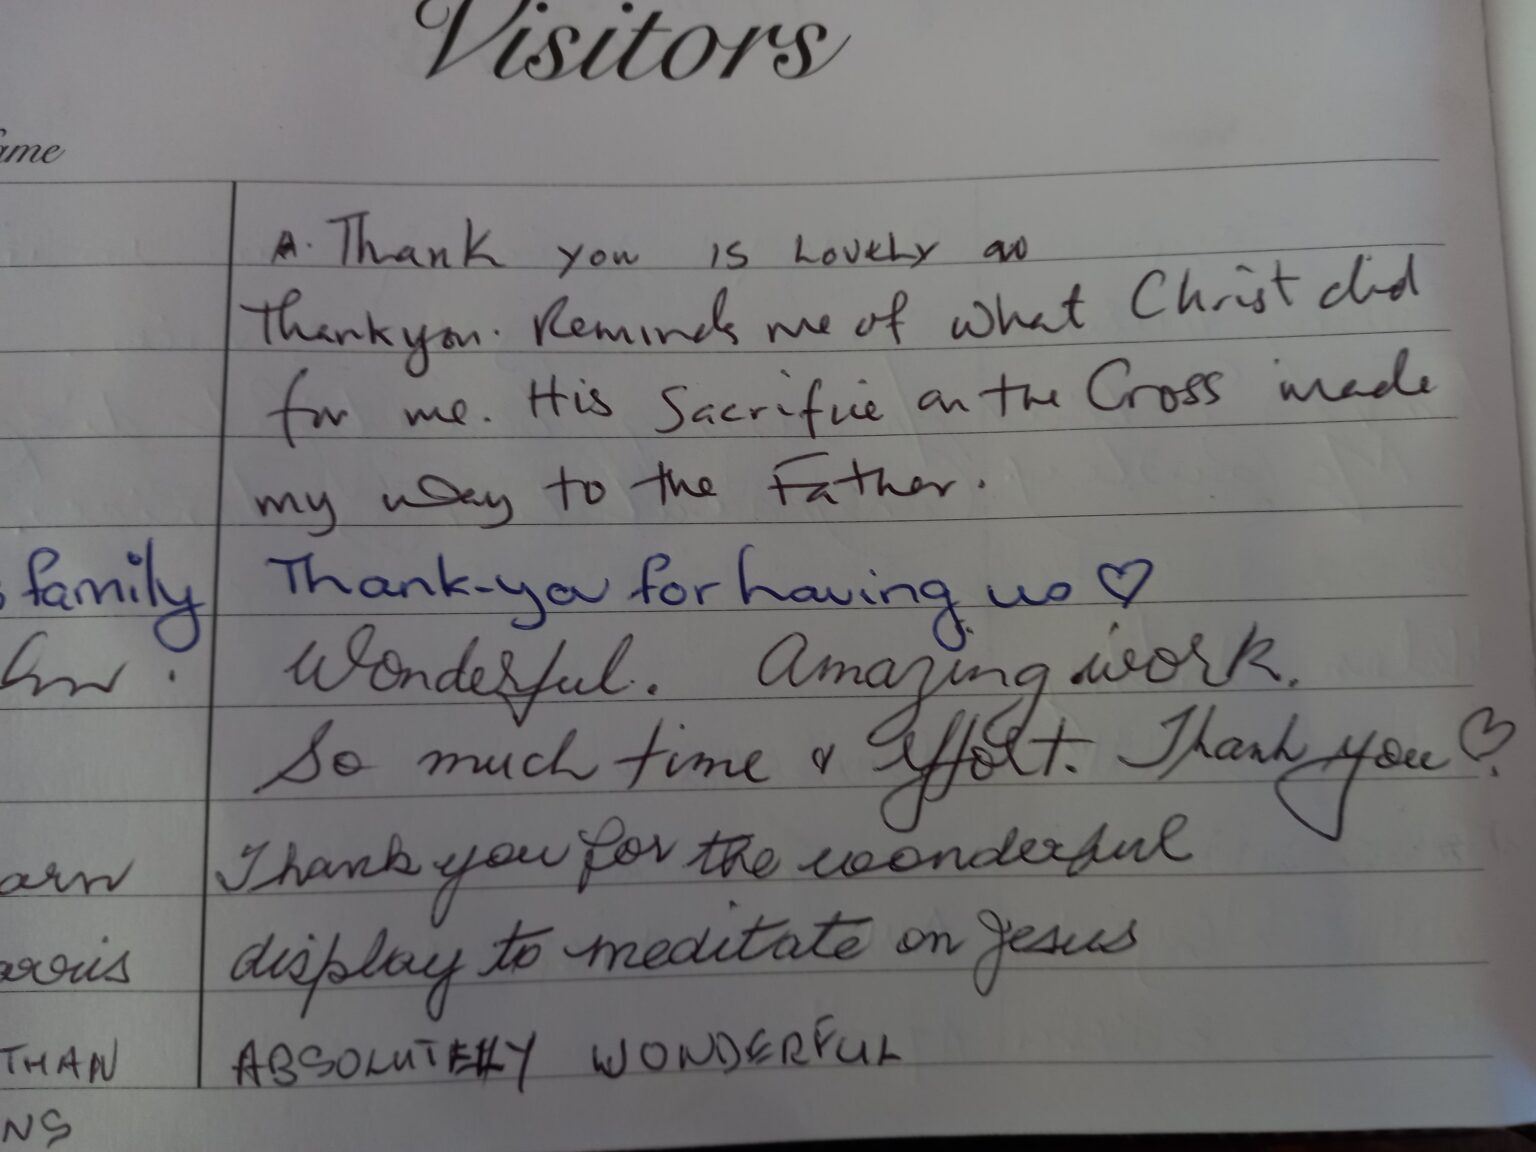 Visitors
ame
A. Thank you is Lovely so
Thankyou. Reminds me of what Christ did
for me. His Sacrifice on the Cross made
my way to the Father.
family Thank-you for having us ♡
Wonderful. Amazing work.
So much time & effort. Thank you ♡.
arn Thank you for the wonderful
display to meditate on Jesus
THAN ABSOLUTELY WONDERFUL
NS